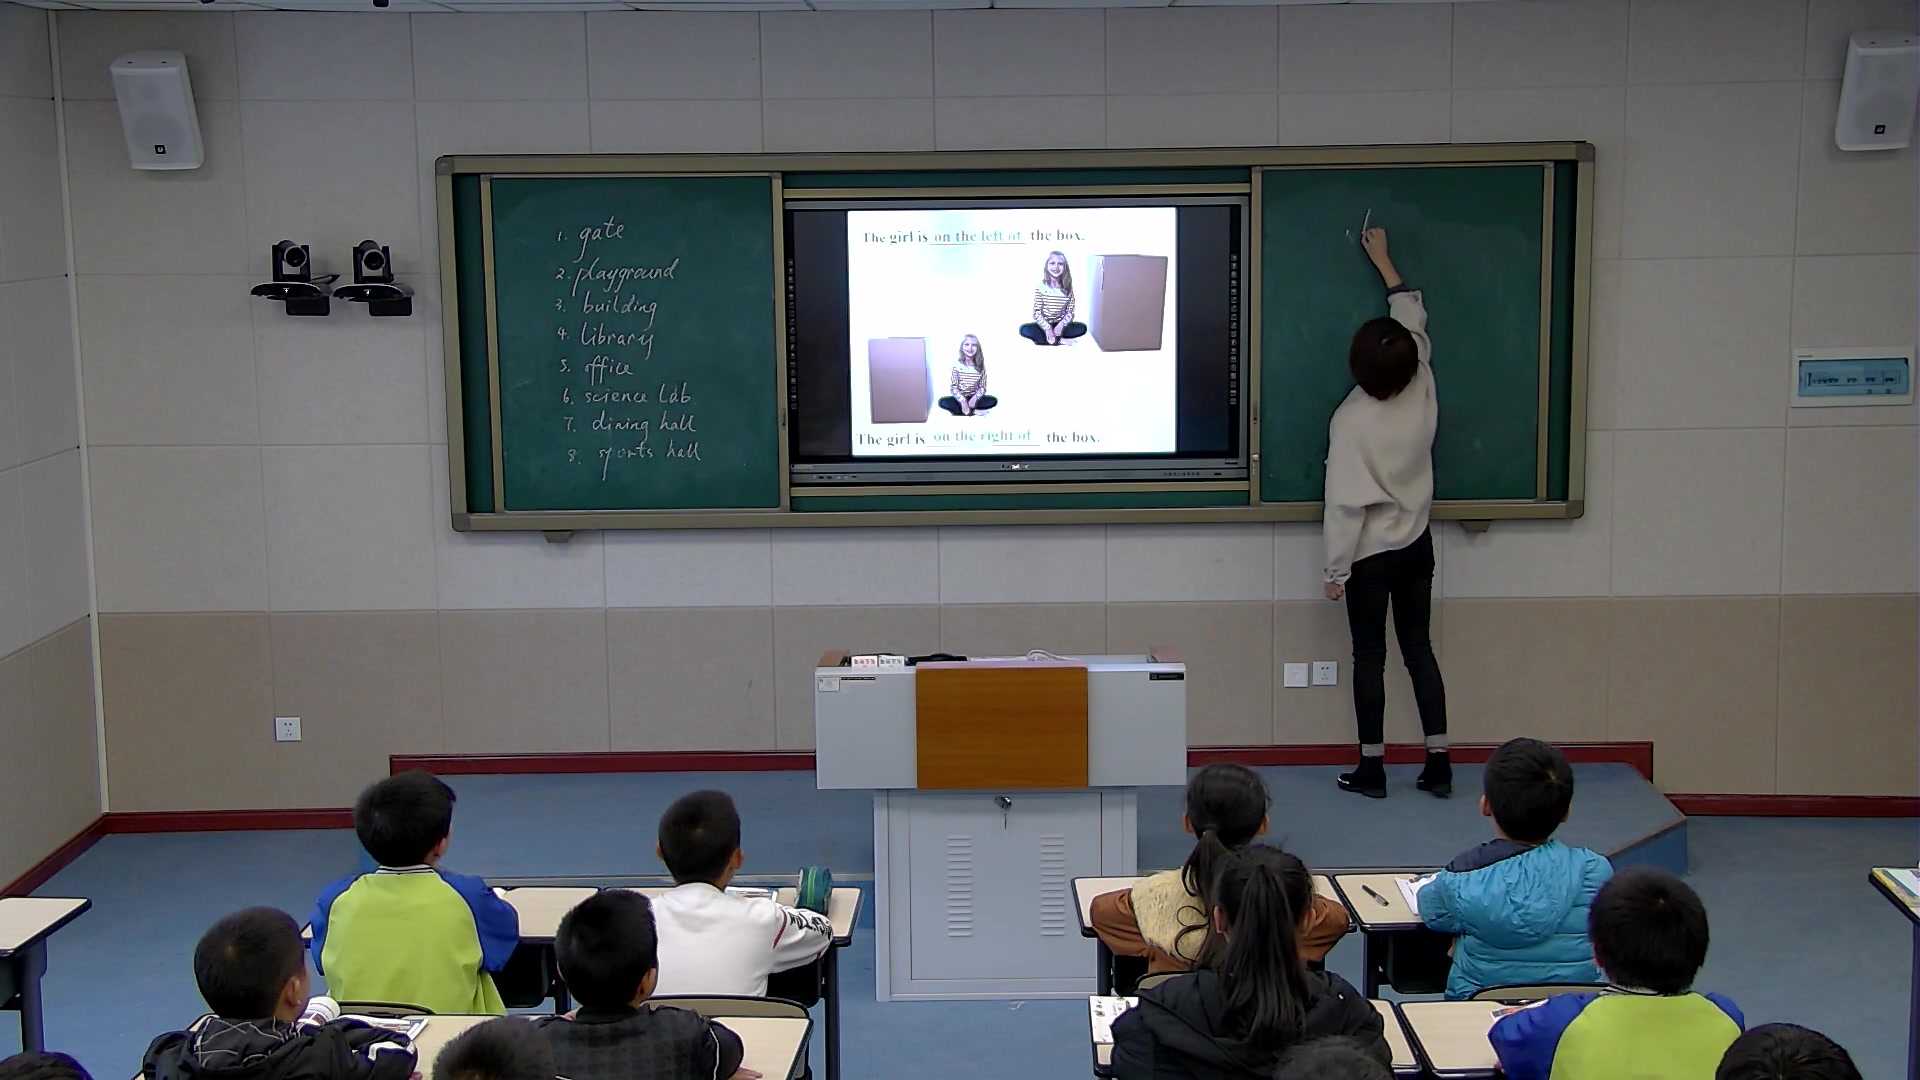 1. gate
2. playground
3. building
4. library
5. office
6. science lab
7. dining hall
8. sports hall
The girl is on the left of the box.
The girl is on the right of the box.